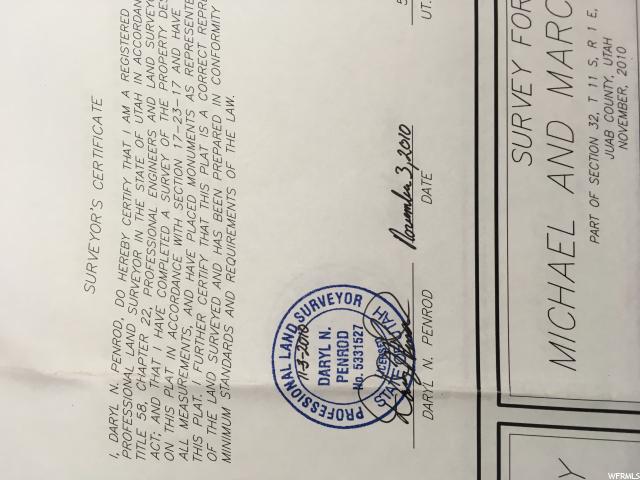 SURVEYOR'S CERTIFICATE
I, DARYL N. PENROD, DO HEREBY CERTIFY THAT I AM A REGISTERED
PROFESSIONAL LAND SURVEYOR IN THE STATE OF UTAH IN ACCORDAN
TITLE 58, CHAPTER 22, PROFESSIONAL ENGINEERS AND LAND SURVEYO
ACT; AND THAT I HAVE COMPLETED A SURVEY OF THE PROPERTY DES
ON THIS PLAT IN ACCORDANCE WITH SECTION 17-23-17 AND HAVE
ALL MEASUREMENTS, AND HAVE PLACED MONUMENTS AS REPRESENTE
THIS PLAT. I FURTHER CERTIFY THAT THIS PLAT IS A CORRECT REPR
OF THE LAND SURVEYED AND HAS BEEN PREPARED IN CONFORMITY
MINIMUM STANDARDS AND REQUIREMENTS OF THE LAW.
PROFESSIONAL LAND SURVEYOR
11-3-2010
DARYL N.
PENROD
No. 5331527
STATE OF UTAH
November 3, 2010
DARYL N. PENROD
DATE
UT.
SURVEY FOR
MICHAEL AND MARC
PART OF SECTION 32, T 11 S, R 1 E,
JUAB COUNTY, UTAH
NOVEMBER, 2010
Y
WFRMLS